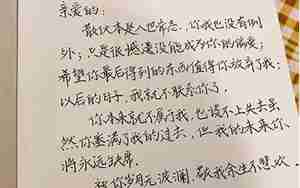 亲爱的:
散伙本是人世常态,你我也没有例
外;只是很遗憾没能成为你的偏爱;
希望你最后得到的东西值得你放弃了我;
以后的日子,我就不联系你了。
你本来就不属于我,也谈不上失去,虽
然你塞满了我的过去,但我的未来你
将永远缺席。
你岁月无波澜,敬我余生不悲欢